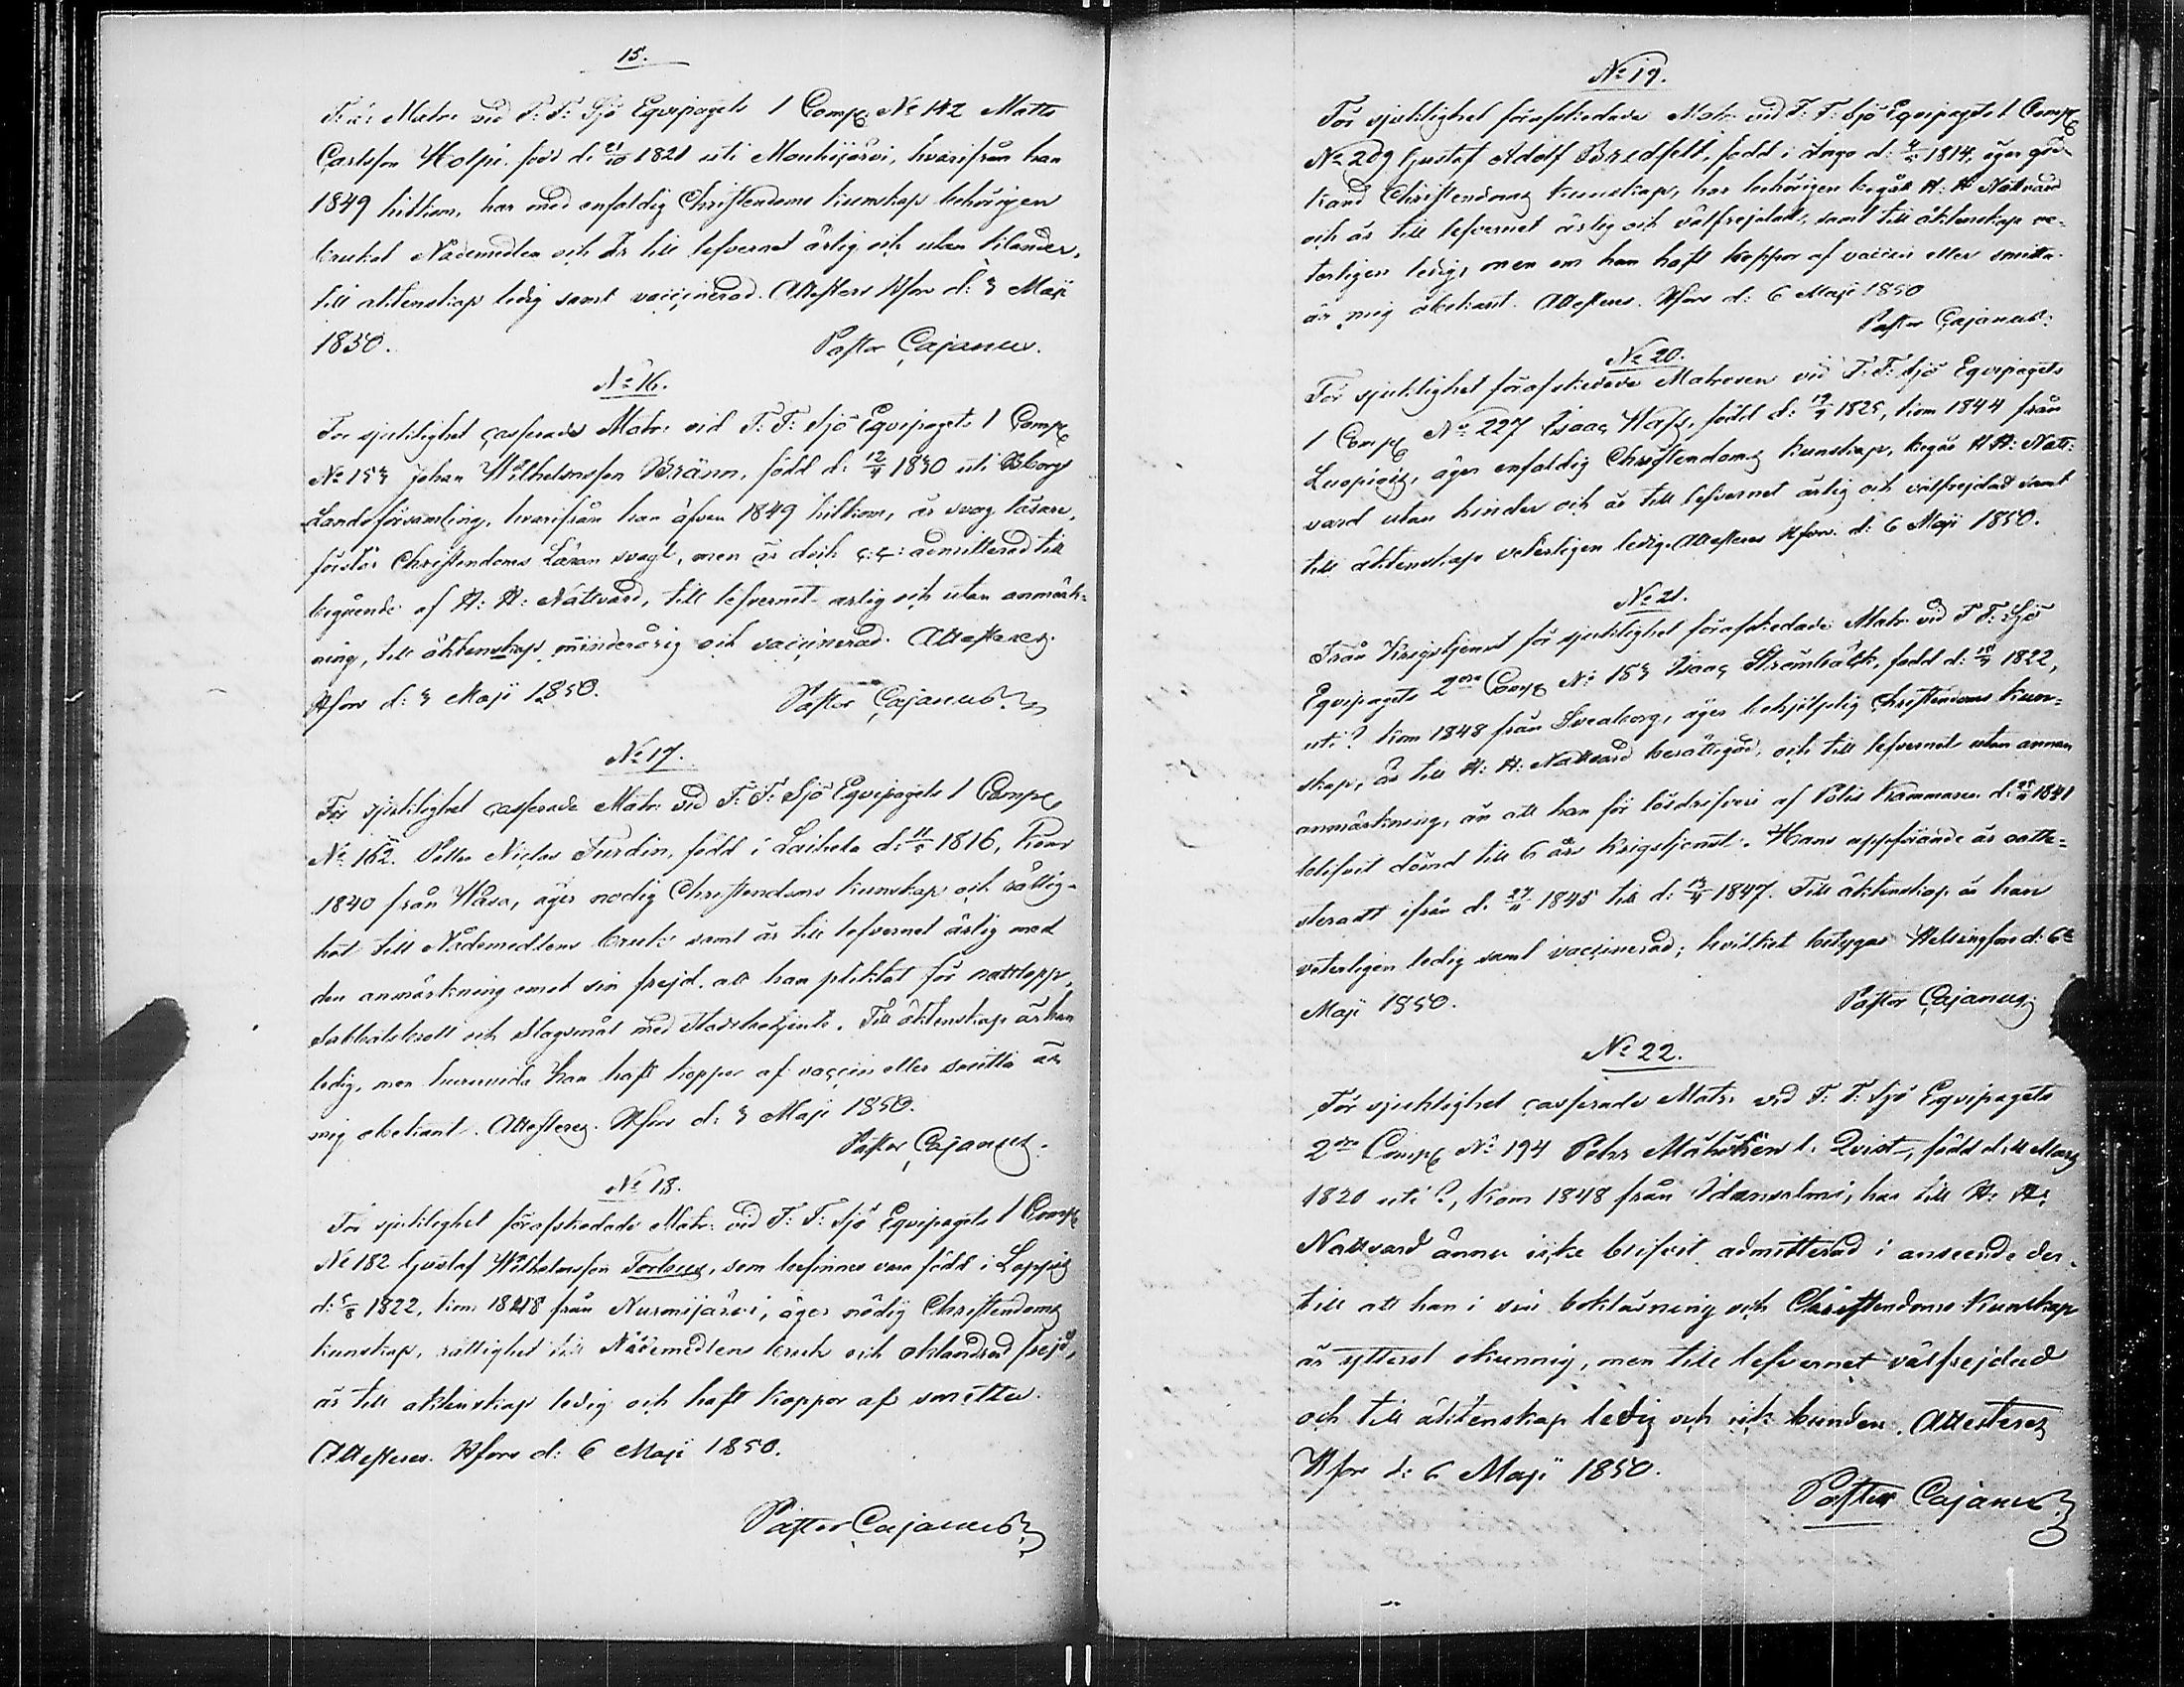 15.
F. d: Matr. vid F: F: Sjö Eqvipagets 1 Comp: No 142 Matts
Carlsson Holpi, född d: 21/10 1821 uti Mouhijärvi, hvarifrån han
1849 hitkom, har med enfaldig Christendoms kunskap behörigen
brukat Nådemedlen och är till lefvernet ärlig och utan klander,
till äktenskap ledig samt vaccinerad. Attesteras Hfors d: 3 Maji
1850. Pastor Cajanus.
No 16.
För sjuklighet casserade Matr: vid F: F: Sjö Eqvipagets 1 Comp
No 153 Johan Wilhelmsson Bränn, född d: 12/4 1830 uti Borgå
Landsförsamling, hvarifrån han äfven 1849 hitkom, är svag läsare,
förstår Christendoms Läran svagt, men är dock admitterad till
begående af H: H: Nattvard, till lefvernet ärlig och utan anmärk-
ning, till äktenskap minderårig och vaccinerad. Attesteras
Hfors d: 3 Maji 1850. Pastor Cajanus.
No 17.
För sjuklighet casserade Matr: vid F: F: Sjö Eqvipagets 1 Comp
No 162. Petter Niclas Furdin, född i Laihela d: 11/5 1816, kom
1840 från Wasa, äger nödig Christendoms kunskap och rättig-
het till Nådemedlens bruk samt är till lefvernet ärlig med
den anmärkning emot sin frejd, att han pliktat för nattlopp,
sabbatsbrott och slagsmål med Stadsbetjente. Till äktenskap är han
ledig, men huruvida han haft koppor af vaccin eller smitta är
mig obekant. Attesteras. Hfors d: 3 Maji 1850.
Pastor Cajanus.
No 18.
För sjuklighet förafskedade Matr: vid F: F: Sjö Eqvipagets 1 Comp
No 182 Gustaf Wilhelmsson Forteus, som befinnes vara född i Loppis
d: 5/8 1822, kom 1848 från Nurmijärvi, äger nödig Christendoms
kunskap, rättighet till Nådemedlens bruk och oklandrad frejd,
är till äktenskap ledig och haft koppor af smitta.
Attesteras. Hfors d: 6 Maji 1850.
Pastor Cajanus
No 19.
För sjuklighet förafskedade Matr. vid F: F: Sjö Eqvipagets 1 Comp
No 209 Gustaf Adolf Bredfelt, född i Ingo d: 4/5 1814, äger god-
känd Christendoms kunskap, har behörigen begått H: H: Nattvard
och är till lefvernet ärlig och välfrejdad, samt till äktenskap ve-
terligen ledig, men om han haft koppor af vaccin eller smitta
är mig obekant. Attesteras. Hfors d: 6 Maji 1850
Pastor Cajanus.
No 20.
För sjuklighet förafskedade Matrosen vid F: F: Sjö Eqvipagets
1 Comp No 227 Isaac Hass, född d: 19/5 1825, kom 1844 från
Luopiois, äger enfaldig Christendoms kunskap, begår H H: Natt-
vard utan hinder och är till lefvernet ärlig och välfrejdad samt
till äktenskap veterligen ledig. Attesteras Hfors d: 6 Maji 1850.
No 21.
Från Krigstjenst för sjuklighet förafskedade Matr. vid F F: Sjö
Eqvipagets 2dra Comp No 153 Isaac Strömbäck, född d: 15/3 1822,
uti? kom 1848 från Sveaborg, äger behjelplig Christendoms kun-
skap, är till H: H: Nattvard berättigad, och till lefvernet utan annan
anmärkning, än att han för lösdrifveri af Polis Kammaren d: 25/11 1841
blifvit dömd till 6 års krigstjenst. Hans uppförande är oatte-
steradt ifrån d: 27/11 1845 till d: 13/4 1847. Till äktenskap är han
veterligen ledig samt vaccinerad; hvilket betygas Helsingfors d: 6te
Maji 1850. Pastor Cajanus
No 22.
För sjuklighet casserade Matr: vid F: F: Sjö Eqvipagets
2dra Comp No 194 Pehr Mähönen l. Qvist, född d: 11 Mars
1820 uti?, kom 1848 från Idensalmi, har till H: H:
Nattvard ännu icke blifvit admitterad i anseende der-
till att han i sin bokläsning och Christendoms kunskap
är ytterst okunnig, men till lefvernet välfrejdad
och till äktenskap ledig och icke bunden. Attesteras
Hfors d: 6 Maji 1850.
Pastor Cajanus